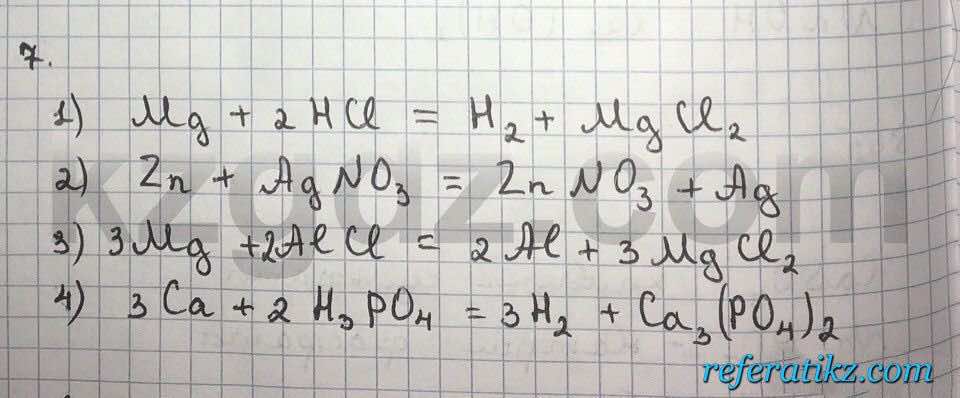 7.
1) Mg + 2 HCl = H₂ + MgCl₂
2) Zn + AgNO₃ = ZnNO₃ + Ag
3) 3Mg + 2AlCl = 2Al + 3MgCl₂
4) 3Ca + 2 H₃PO₄ = 3H₂ + Ca₃(PO₄)₂
kzgdz.com
referatikz.com